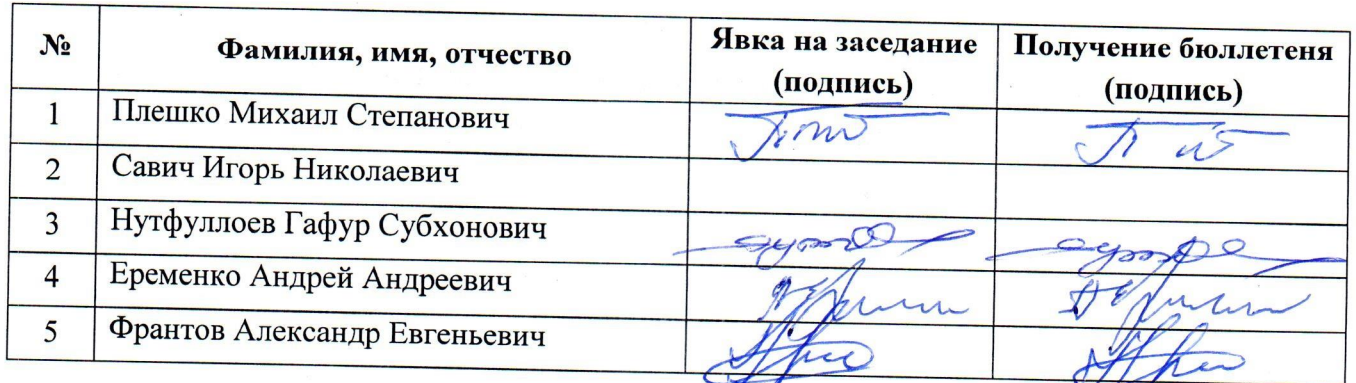 № Фамилия, имя, отчество Явка на заседание (подпись) Получение бюллетеня (подпись)
1 Плешко Михаил Степанович
2 Савич Игорь Николаевич
3 Нутфуллоев Гафур Субхонович
4 Еременко Андрей Андреевич
5 Франтов Александр Евгеньевич